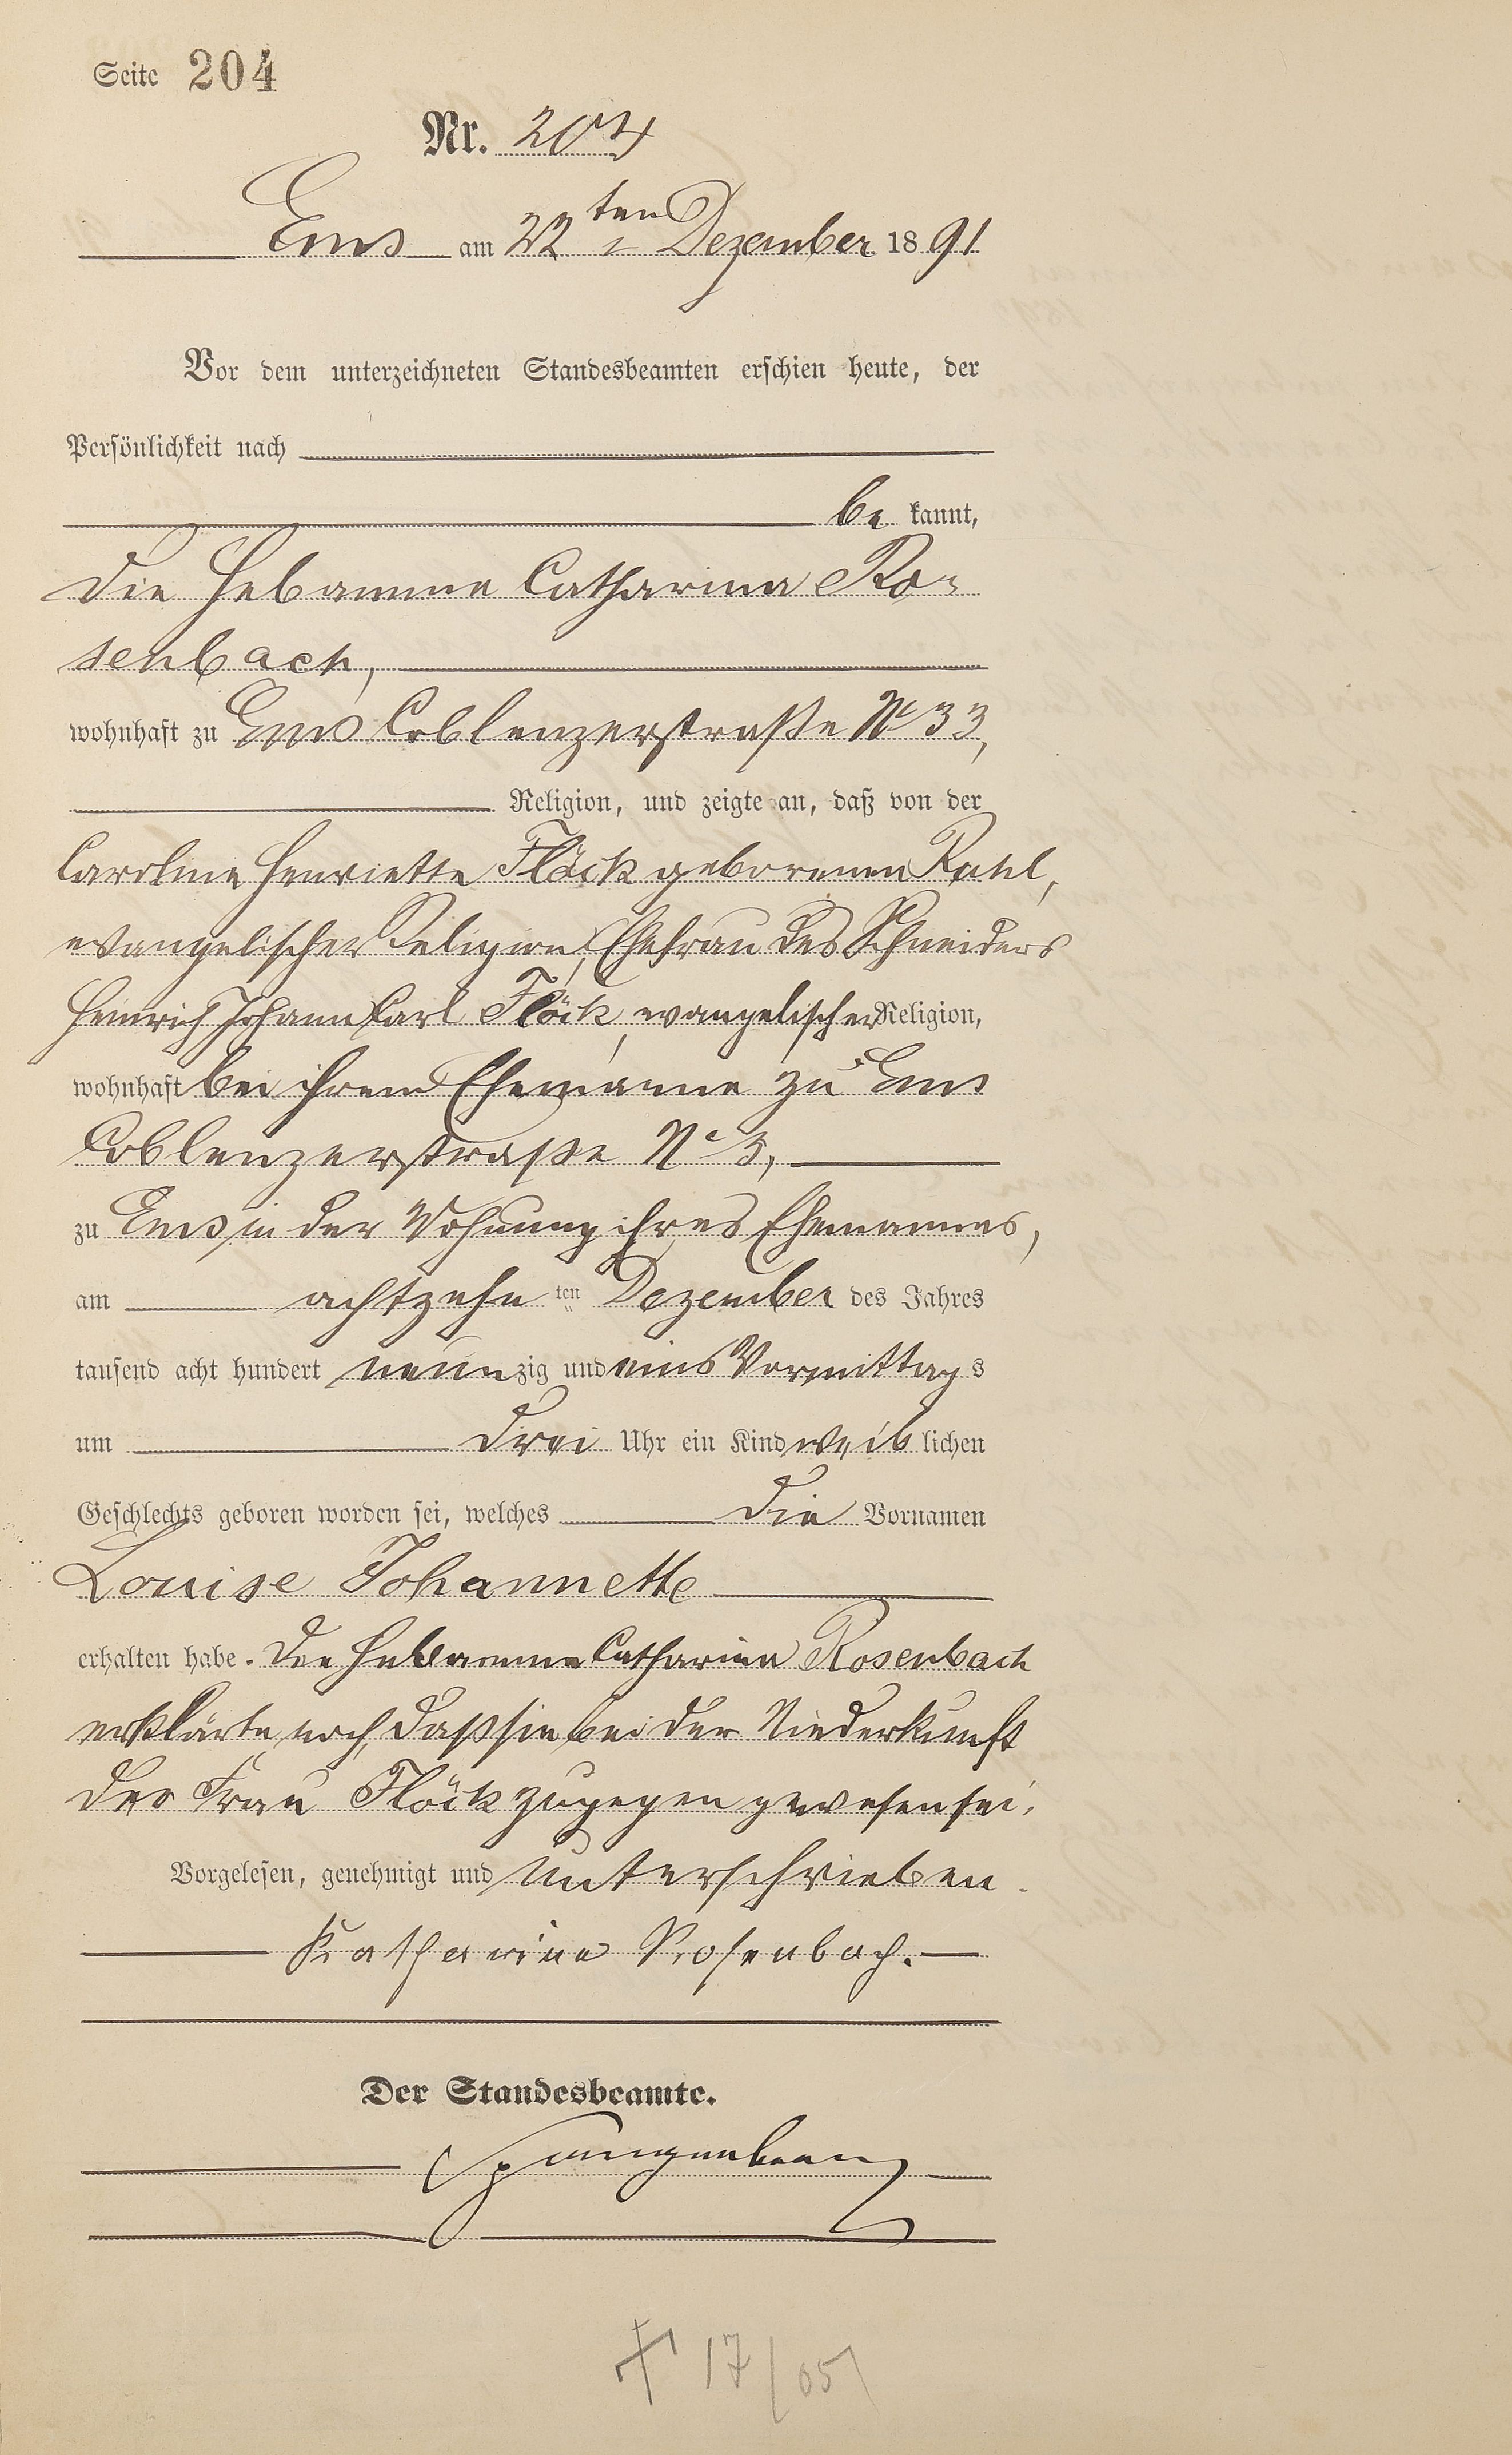 Seite 204
Nr. 204
Ems am 22ten Dezember 1891
Vor dem unterzeichneten Standesbeamten erschien heute, der
Persönlichkeit nach
be kannt,
die Hebamme Catharina Ro-
senbach,
wohnhaft zu Ems Coblenzerstraße No 33,
Religion, und zeigte an, daß von der
Caroline Henriette Flöck geborenen
evangelischer Religion, Ehefrau des Schneiders
Heinrich Johann Carl Flöck, evangelischer Religion,
wohnhaft bei ihrem Ehemanne zu Ems
Coblenzerstraße No 3,
zu Ems, in der Wohnung ihres Ehemannes,
am achtzehn ten Dezember des Jahres
tausend acht hundert neun zig und eins Vormittags
um drei Uhr ein Kind weib lichen
Geschlechts geboren worden sei, welches die Vornamen
Louise Johannette
erhalten habe. Die Hebamme Catharina Rosenbach
erklärte noch, daß sie bei der Niederkunft
der Frau Flöck zugegen gewesen sei.
Vorgelesen, genehmigt und unterschrieben.
Katharina Rosenbach.
Der Standesbeamte.
Spangenberg
† 17/05